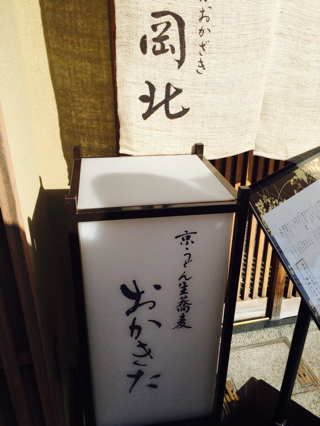 おかざき
岡北
京うどん生蕎麦
おかきた